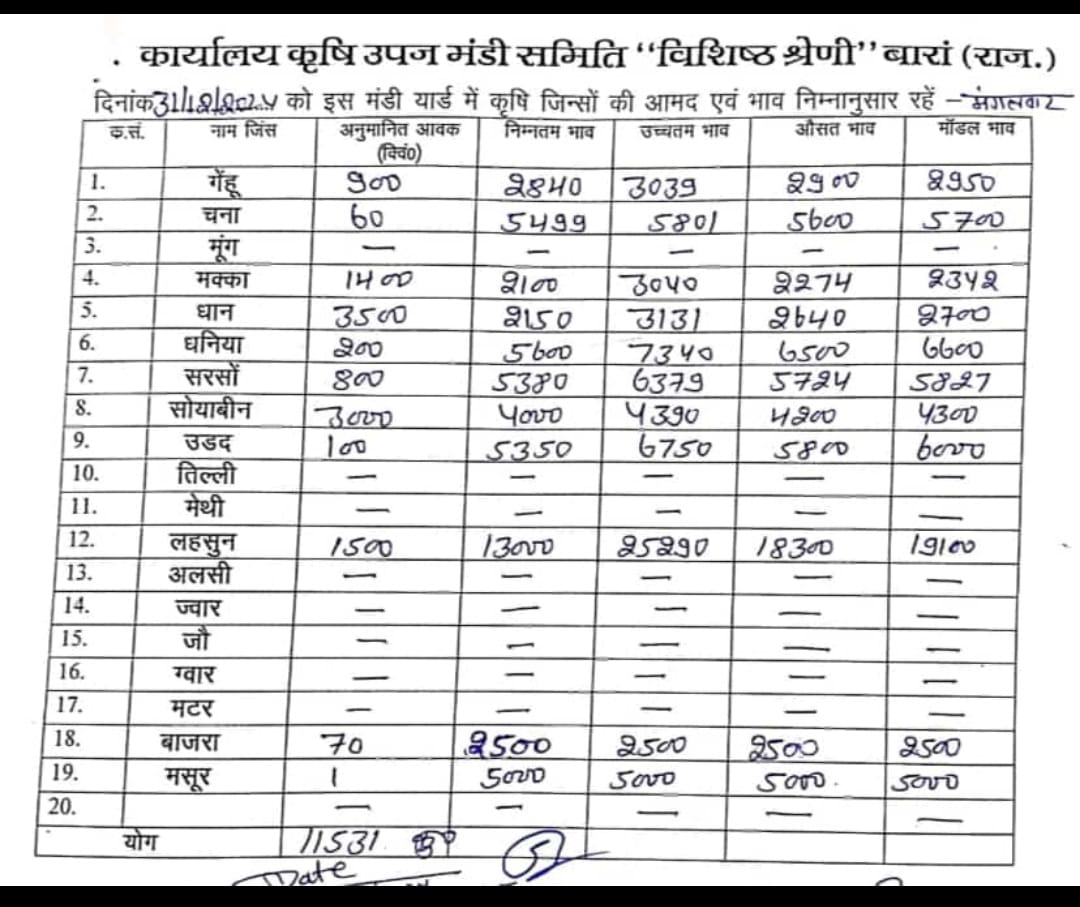 . कार्यालय कृषि उपज मंडी समिति “विशिष्ठ श्रेणी” बारां (राज.)
दिनांक 31/12/2024 को इस मंडी यार्ड में कृषि जिन्सों की आमद एवं भाव निम्नानुसार रहें – मंगलवार
क्र.सं. नाम जिंस अनुमानित आवक (क्विं०) निम्नतम भाव उच्चतम भाव औसत भाव मॉडल भाव
1. गेंहू 900 2840 3039 2900 2950
2. चना 60 5499 5801 5600 5700
3. मूंग — — — — —
4. मक्का 1400 2100 3040 2274 2342
5. धान 3500 2150 3131 2640 2700
6. धनिया 200 5600 7340 6500 6600
7. सरसों 800 5380 6379 5724 5827
8. सोयाबीन 3000 4000 4390 4200 4300
9. उडद 100 5350 6750 5800 6000
10. तिल्ली — — — — —
11. मेथी — — — — —
12. लहसुन 1500 13000 25290 18300 19100
13. अलसी — — — — —
14. ज्वार — — — — —
15. जौ — — — — —
16. ग्वार — — — — —
17. मटर — — — — —
18. बाजरा 70 2500 2500 2500 2500
19. मसूर 1 5000 5000 5000. 5000
20. — — — — —
योग 11531
Date